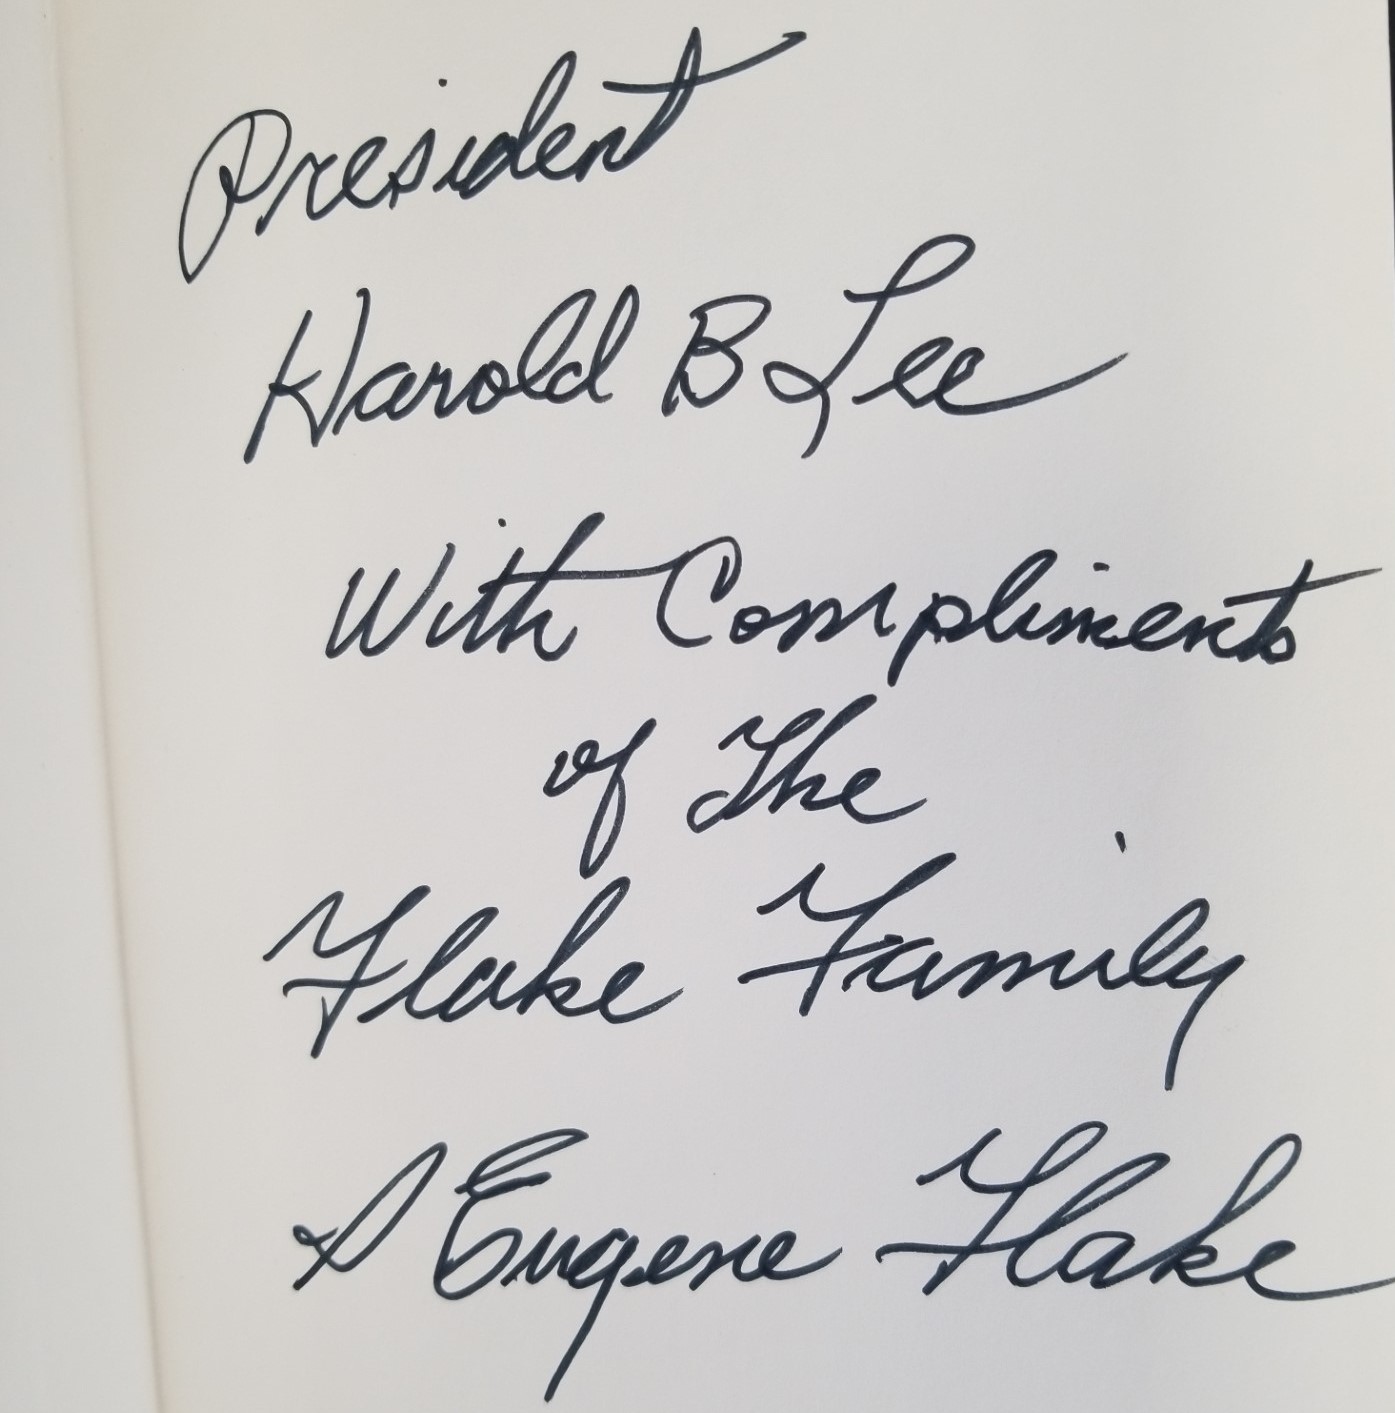 President
Harold B Lee
With Compliments
of The
Flake Family
S Eugene Flake